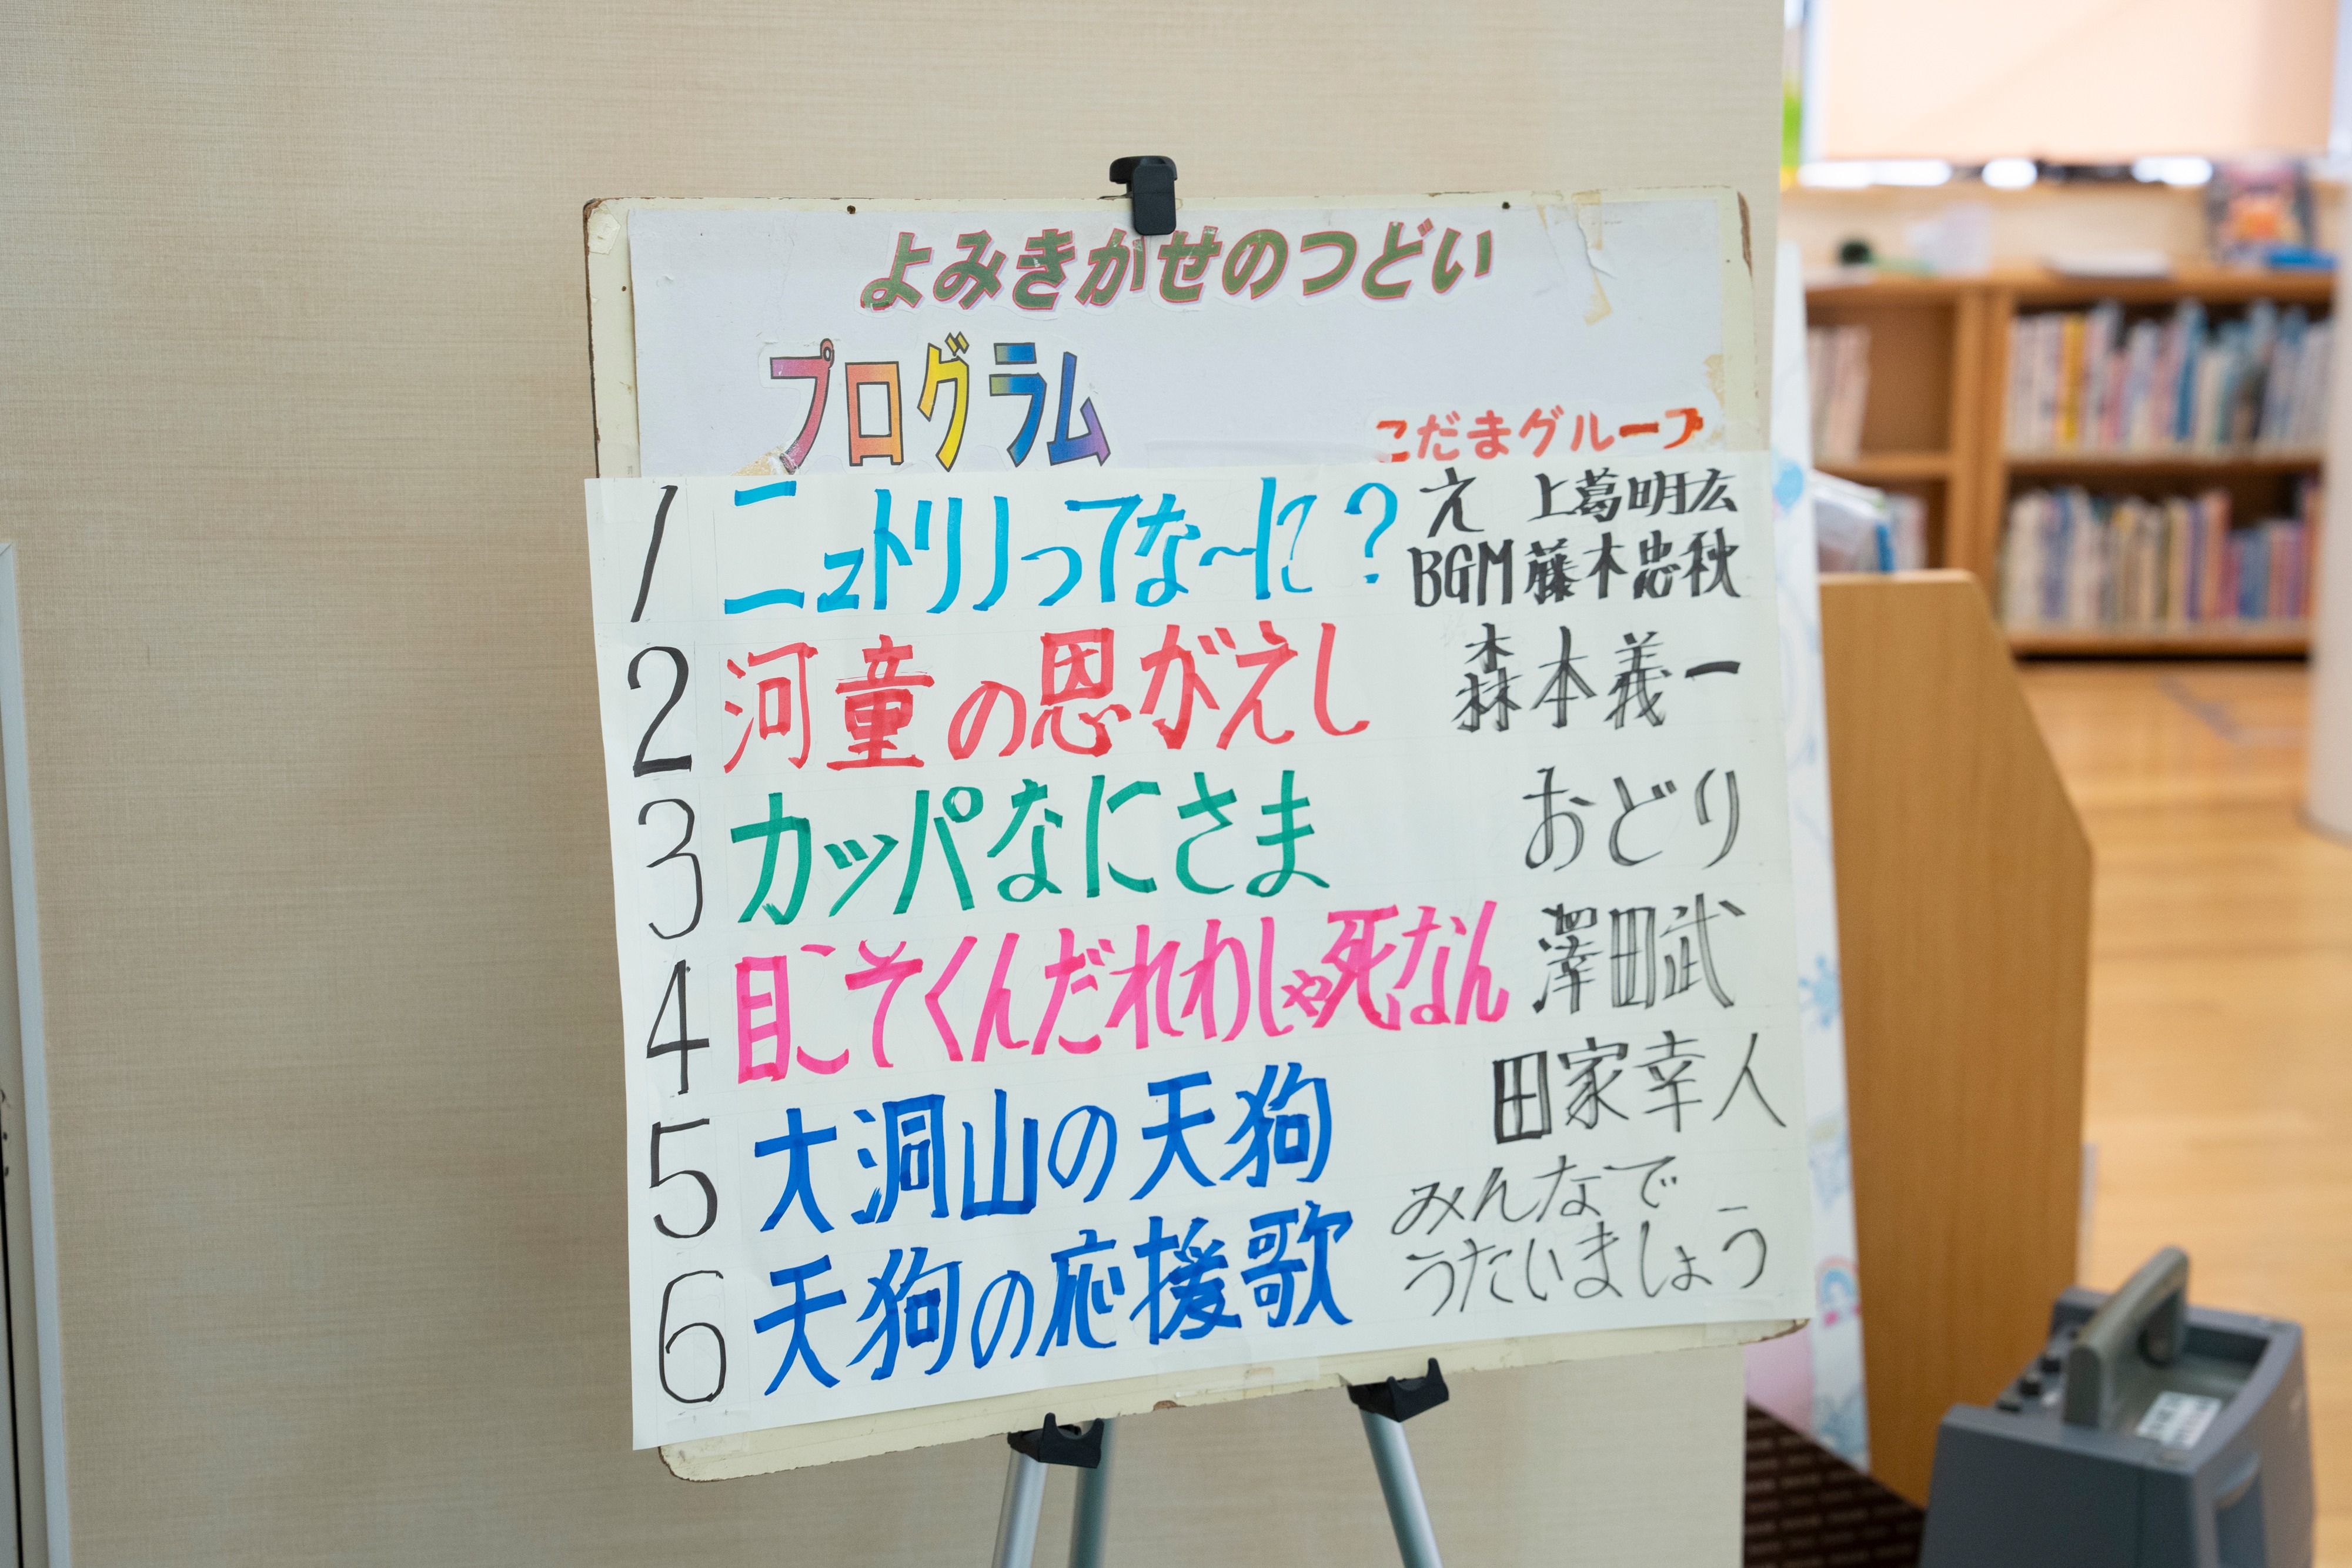 よみきかせのつどい
プログラム
こだまグループ
1 ニュトリノってな〜に? え 上葛明広
BGM 藤木忠秋
2 河童の恩がえし 森本義一
3 カッパなにさま おどり
4 目こそくんだれわしゃ死なん 澤田武
5 大洞山の天狗 田家幸人
6 天狗の応援歌 みんなで
うたいましょう